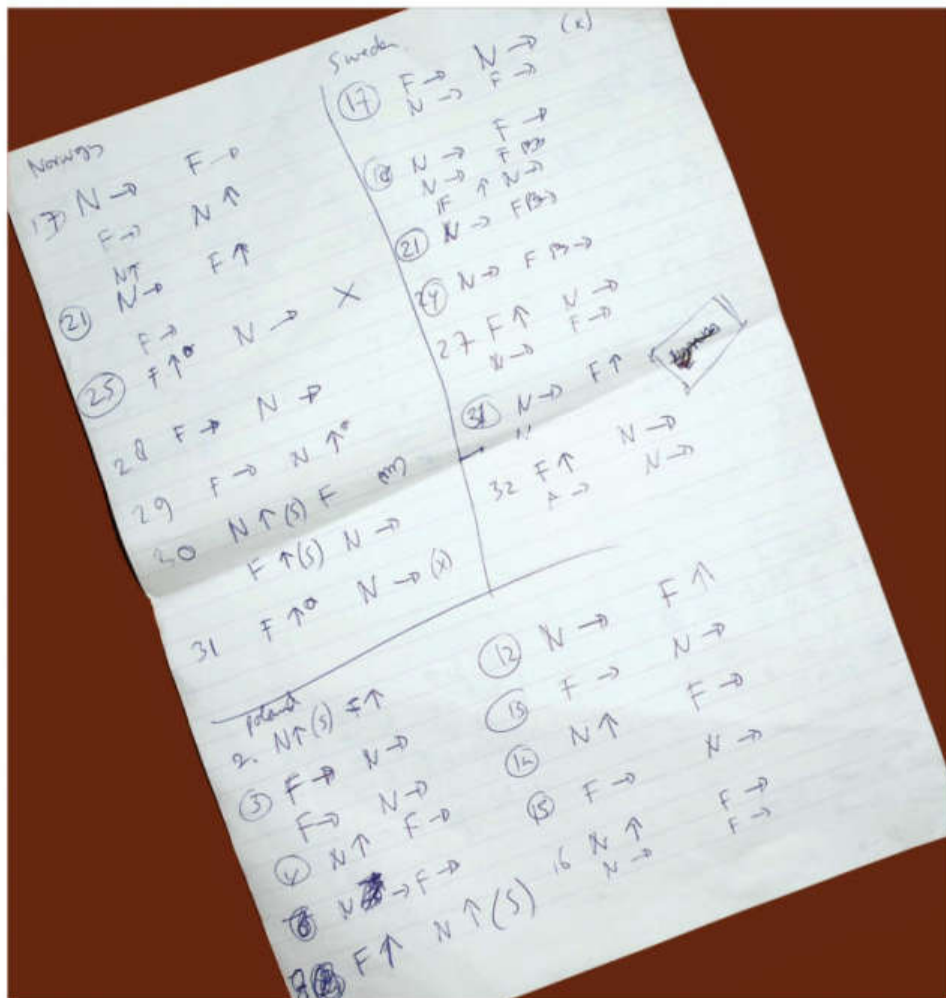 Norway
17) N → F →
F → N ↑
N ↑
(21) N → F ↑
F →
(25) F ↑ N → X
28 F → N →
29 F → N ↑
30 N ↑ (S) F
F ↑ (S) N →
31 F ↑ N → (X)
Sweden
(17) F → N → (x)
N → F →
(18) N → F →
N → F
F ↑ N →
(21) N → F
24 N → F →
27 F ↑ N →
N → F →
(31) N → F ↑
N
32 F ↑ N →
F → N →
2. N ↑ (S) F ↑
(3) F → N →
F → N →
(4) N ↑ F →
(6) N → F →
F ↑ N ↑ (S)
(12) N → F ↑
(13) F → N →
N ↑ F →
(15) F → N →
16 N ↑ F →
N → F →